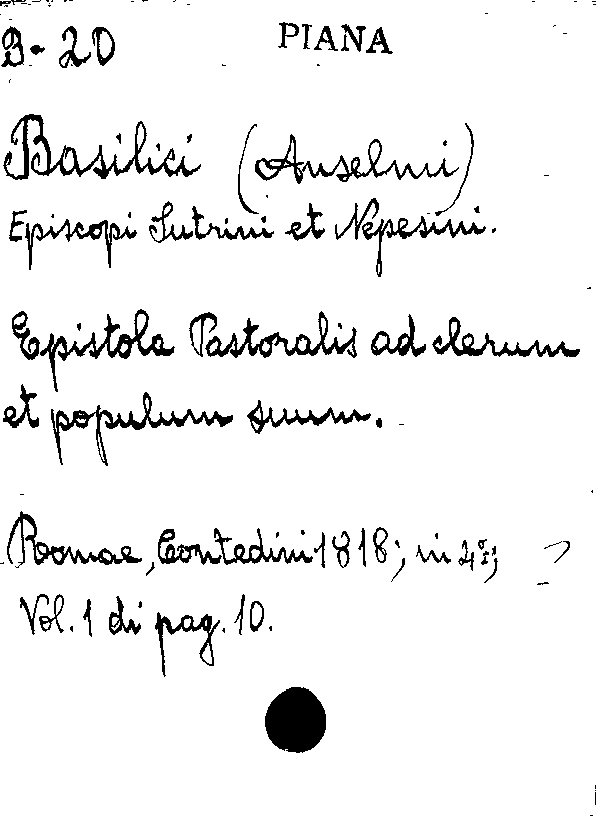 B-20 PIANA
Basilici (Anselmi)
Episcopi Sutrini et Nepesini.
Epistola Pastoralis ad clerum
et populum suum.
Romae, Contedini 1818; in 4º;
Vol. 1 di pag. 10.